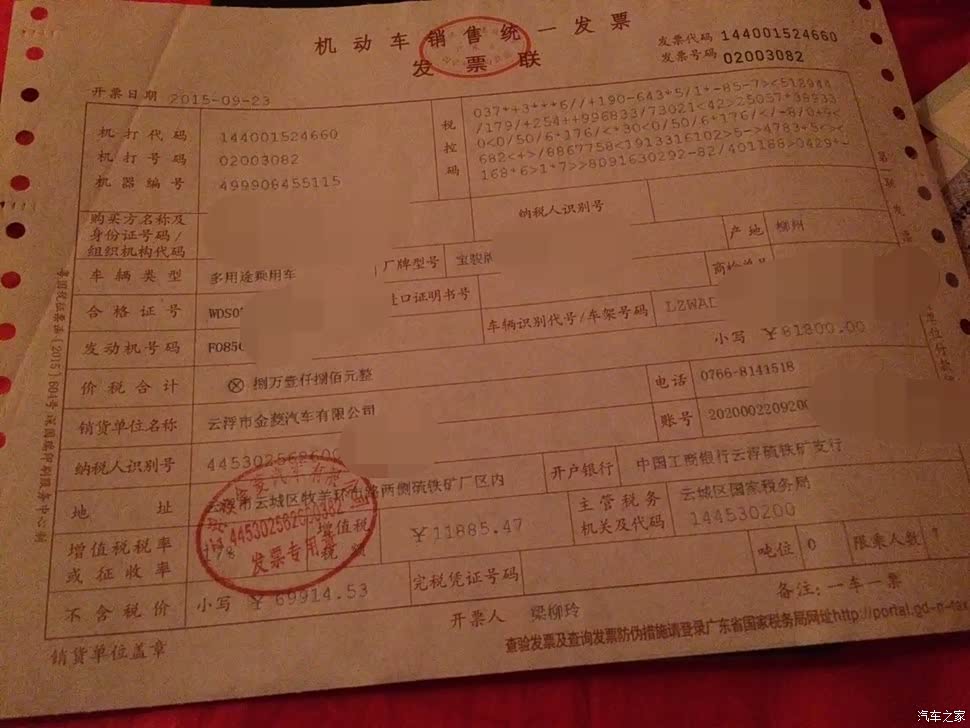 机动车销售统一发票
发票联
发票代码 144001524660
发票号码 02003082
开票日期 2015-09-23
机打代码 144001524660
机打号码 02003082
机器编号 499906455115
税控码
037*+3***6//+190-643*5/1*-85-7><512944
/179/+254++996833/73021<42>25037*38933
0<0/50/6*176/<+30<0/50/6*176/</-8/0+9<
682<+>/8867758<1913316102>5->4783+5<><
168*6>1*7>>8091630292-82/401188>0429+-
购买方名称及
身份证号码/
组织机构代码
纳税人识别号
车辆类型 多用途乘用车 厂牌型号 宝骏牌 产地 柳州
合格证号 WDS0 进口证明书号 商检单号
发动机号码 F085 车辆识别代号/车架号码 LZWAD
价税合计 ⊗ 捌万壹仟捌佰元整 小写 ￥81800.00
销货单位名称 云浮市金菱汽车有限公司 电话 0766-8141518
纳税人识别号 445302562600 账号 2020002209200
地址 云浮市云城区牧羊环市路两侧硫铁矿厂区内 开户银行 中国工商银行云浮硫铁矿支行
增值税税率
或征收率 17% 增值税税额 ￥11885.47 主管税务机关及代码 云城区国家税务局
144530200
不含税价 小写 ￥69914.53 完税凭证号码 吨位 0 限乘人数 7
销货单位盖章 开票人 梁柳玲 备注:一车一票
查验发票及查询发票防伪措施请登录广东省国家税务局网址http://portal.gd-n-tax
发票专用章
第一联 发票
汽车之家